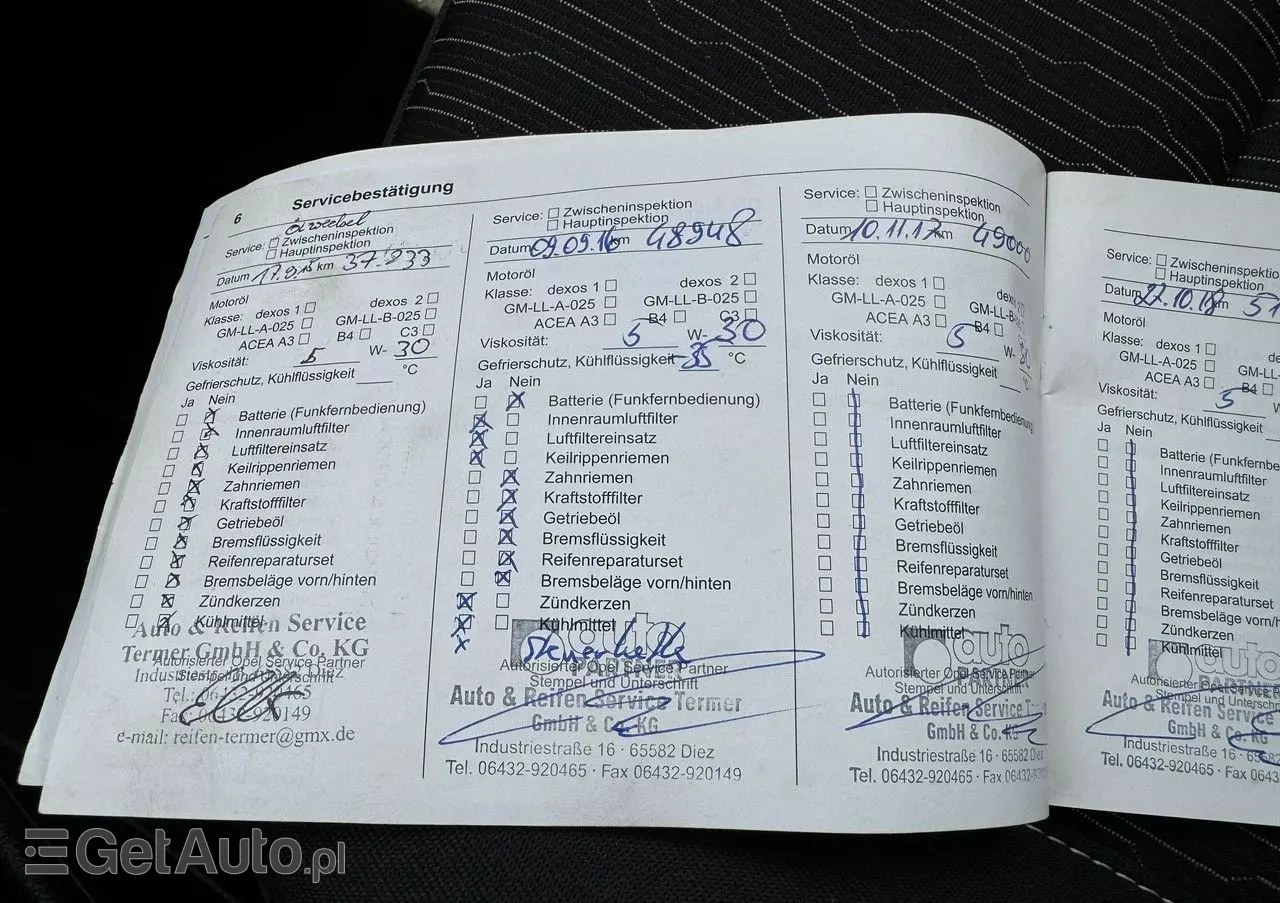 6 Servicebestätigung
Service: Zwischeninspektion
Hauptinspektion
Datum 17.9.15 km 37.233
Motoröl
Klasse: dexos 1 dexos 2
GM-LL-A-025 GM-LL-B-025
ACEA A3 B4 C3
Viskosität: 5 W- 30
Gefrierschutz, Kühlflüssigkeit °C
Ja Nein
Batterie (Funkfernbedienung)
Innenraumluftfilter
Luftfiltereinsatz
Keilrippenriemen
Zahnriemen
Kraftstofffilter
Getriebeöl
Bremsflüssigkeit
Reifenreparaturset
Bremsbeläge vorn/hinten
Zündkerzen
Kühlmittel
Auto & Reifen Service
Termer GmbH & Co. KG
Autorisierter Opel Service Partner
Stempel und Unterschrift
Diez
e-mail: reifen-termer@gmx.de
Service: Zwischeninspektion
Hauptinspektion
Datum 09.09.16 km 48948
Motoröl
Klasse: dexos 1 dexos 2
GM-LL-A-025 GM-LL-B-025
ACEA A3 B4 C3
Viskosität: 5 W- 30
Gefrierschutz, Kühlflüssigkeit -35 °C
Ja Nein
Batterie (Funkfernbedienung)
Innenraumluftfilter
Luftfiltereinsatz
Keilrippenriemen
Zahnriemen
Kraftstofffilter
Getriebeöl
Bremsflüssigkeit
Reifenreparaturset
Bremsbeläge vorn/hinten
Zündkerzen
Kühlmittel
auto
PARTNER
Autorisierter Opel Service Partner
Stempel und Unterschrift
Auto & Reifen Service Termer
GmbH & Co. KG
Industriestraße 16 · 65582 Diez
Tel. 06432-920465 · Fax 06432-920149
Service: Zwischeninspektion
Hauptinspektion
Datum 10.11.17 km 49000
Motoröl
Klasse: dexos 1
GM-LL-A-025
ACEA A3 B4
Viskosität: 5 W-
Gefrierschutz, Kühlflüssigkeit
Ja Nein
Batterie (Funkfernbedienung
Innenraumluftfilter
Luftfiltereinsatz
Keilrippenriemen
Zahnriemen
Kraftstofffilter
Getriebeöl
Bremsflüssigkeit
Reifenreparaturset
Bremsbeläge vorn/hinten
Zündkerzen
Kühlmittel
auto
Autorisierter Opel Service
Stempel und Unterschrift
Auto & Reifen Service
GmbH & Co. KG
Industriestraße 16 · 65582 Diez
Tel. 06432-920465 · Fax 06432-920
Service: Zwischeninspektion
Hauptinspektion
Datum 22.10.18 km 51
Motoröl
Klasse: dexos 1
GM-LL-A-025 GM-LL-
ACEA A3 B4
Viskosität: 5
Gefrierschutz, Kühlflüssigkeit
Ja Nein
Batterie (Funkfernbe
Innenraumluftfilter
Luftfiltereinsatz
Keilrippenriemen
Zahnriemen
Kraftstofffilter
Getriebeöl
Bremsflüssigkeit
Reifenreparaturset
Bremsbeläge vorn/h
Zündkerzen
Kühlmittel
auto
Autorisierter Opel
Stempel und Unterschr
Auto & Reifen Service
GmbH & Co. KG
Industriestraße 16
Tel. 06432-920465 · Fax
GetAuto.pl